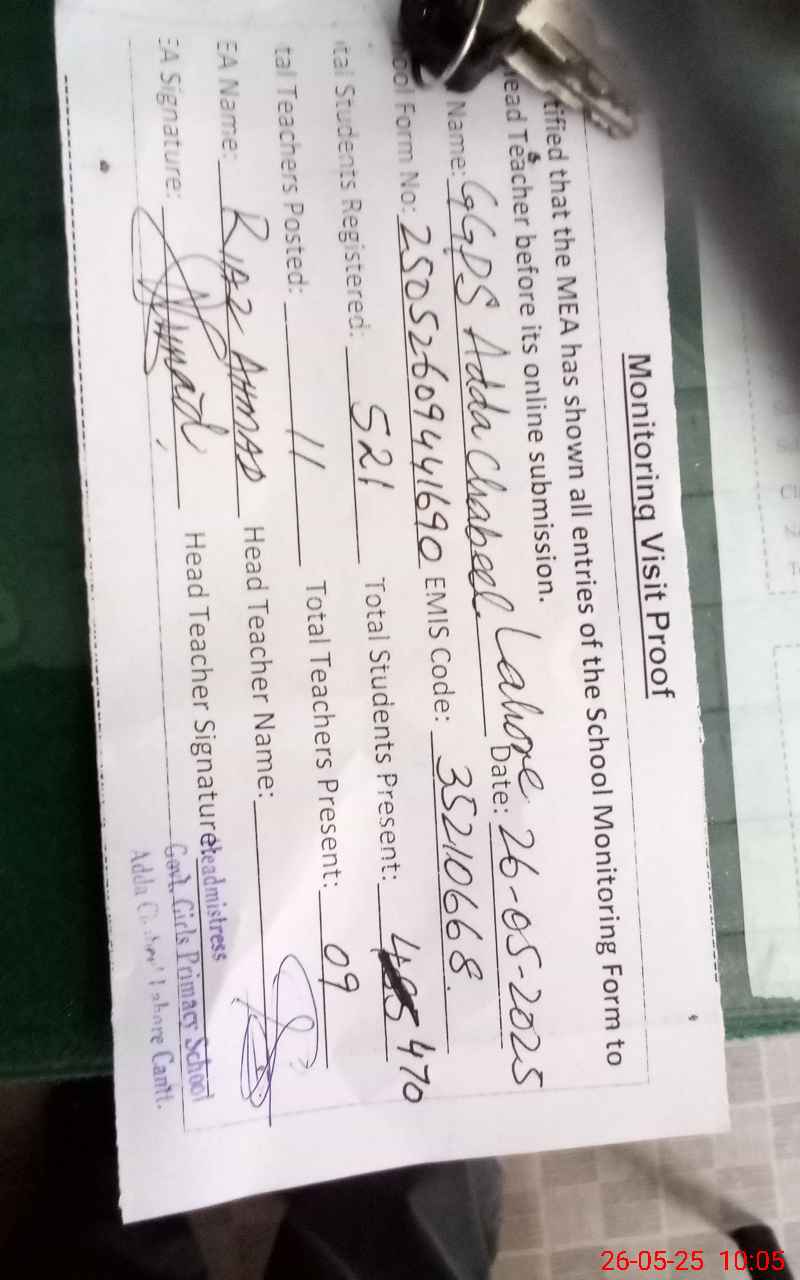 Monitoring Visit Proof
tified that the MEA has shown all entries of the School Monitoring Form to
ead Teacher before its online submission.
Name: GGPS Adda Chabeel Lahore Date: 26-05-2025
ool Form No: 25052609441690 EMIS Code: 35210668.
tal Students Registered: 521 Total Students Present: 470
tal Teachers Posted: 11 Total Teachers Present: 09
EA Name: RIAZ AHMAD Head Teacher Name:
EA Signature: Head Teacher Signature:
Headmistress
Govt. Girls Primary School
Adda Lahore Cantt.
26-05-25 10:05